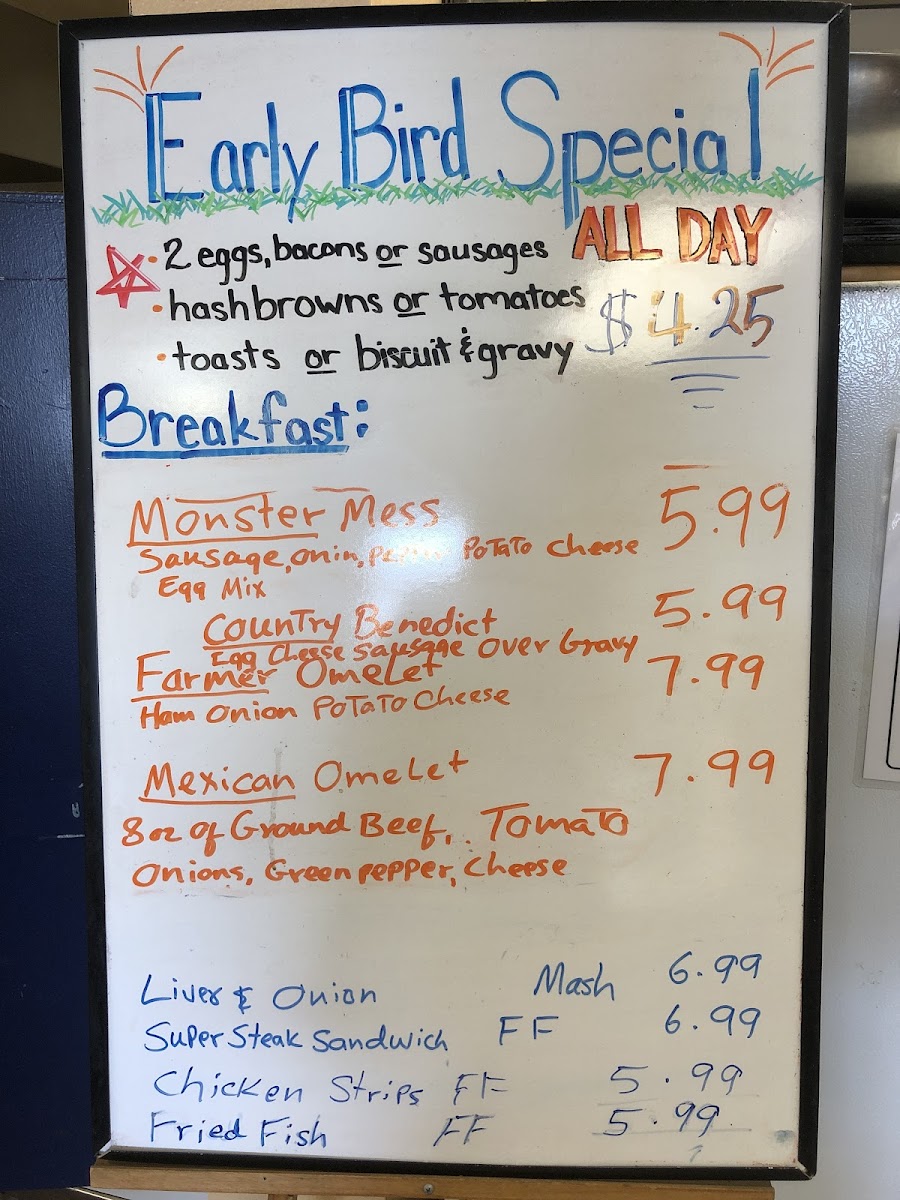 Early Bird Special
ALL DAY
• 2 eggs, bacons or sausages
• hashbrowns or tomatoes $4.25
• toasts or biscuit & gravy
Breakfast:
Monster Mess 5.99
Sausage, onin, PoTaTo cheese
Egg Mix
Country Benedict 5.99
Egg Cheese sausage over Gravy
Farmer OmeLet 7.99
Ham onion PoTaTo Cheese
Mexican OmeLet 7.99
8 oz of Ground Beef, Tomato
Onions, Green pepper, Cheese
Liver & Onion Mash 6.99
Super Steak Sandwich FF 6.99
Chicken Strips FF 5.99
Fried Fish FF 5.99